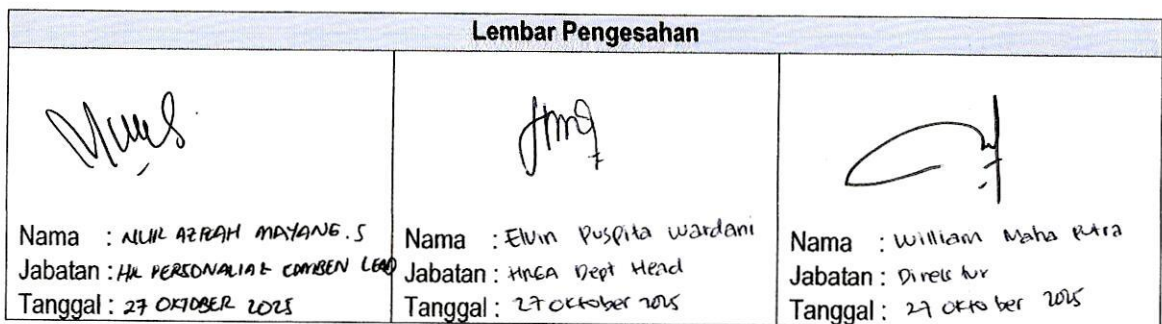 Lembar Pengesahan
Nama : NUR AZFRAH MAYANG.S
Jabatan : HR PERSONALIA & COMBEN LEAD
Tanggal : 27 OKTOBER 2025
Nama : Elvin Puspita Wardani
Jabatan : HRGA Dept Head
Tanggal : 27 Oktober 2025
Nama : William Maha Putra
Jabatan : Direktur
Tanggal : 27 Oktober 2025